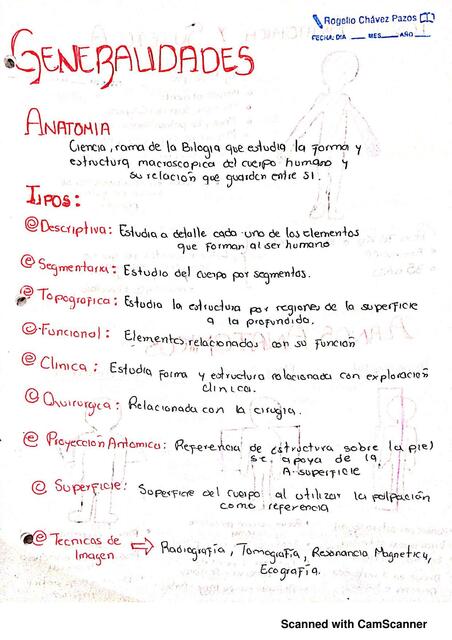 Rogelio Chávez Pazos
FECHA: DIA ___ MES ___ AÑO ___
GENERALIDADES
ANATOMIA
Ciencia, rama de la Bilogia que estudia la forma y
estructura macroscopica del cuerpo humano y
su relación que guarden entre si.
TIPOS:
@ Descriptiva: Estudia a detalle cada uno de los elementos
que forman al ser humano
@ Segmentaria: Estudio del cuerpo por segmentos.
@ Topografica: Estudia la estructura por regiones de la superficie
a la profundida.
@ Funcional: Elementos relacionados con su función
@ Clinica: Estudia forma y estructura relacionada con exploración
clinica.
@ Quirurgica: Relacionada con la cirugia.
@ Proyección Antomica: Referencia de estructura sobre la piel
se apoya de la
A. superficie
@ Superficie: Superficie del cuerpo al utilizar la palpación
como referencia
@ Tecnicas de
Imagen ⇨ Radiografía, Tomografía, Resonancia Magnetica,
Ecografía.
Scanned with CamScanner